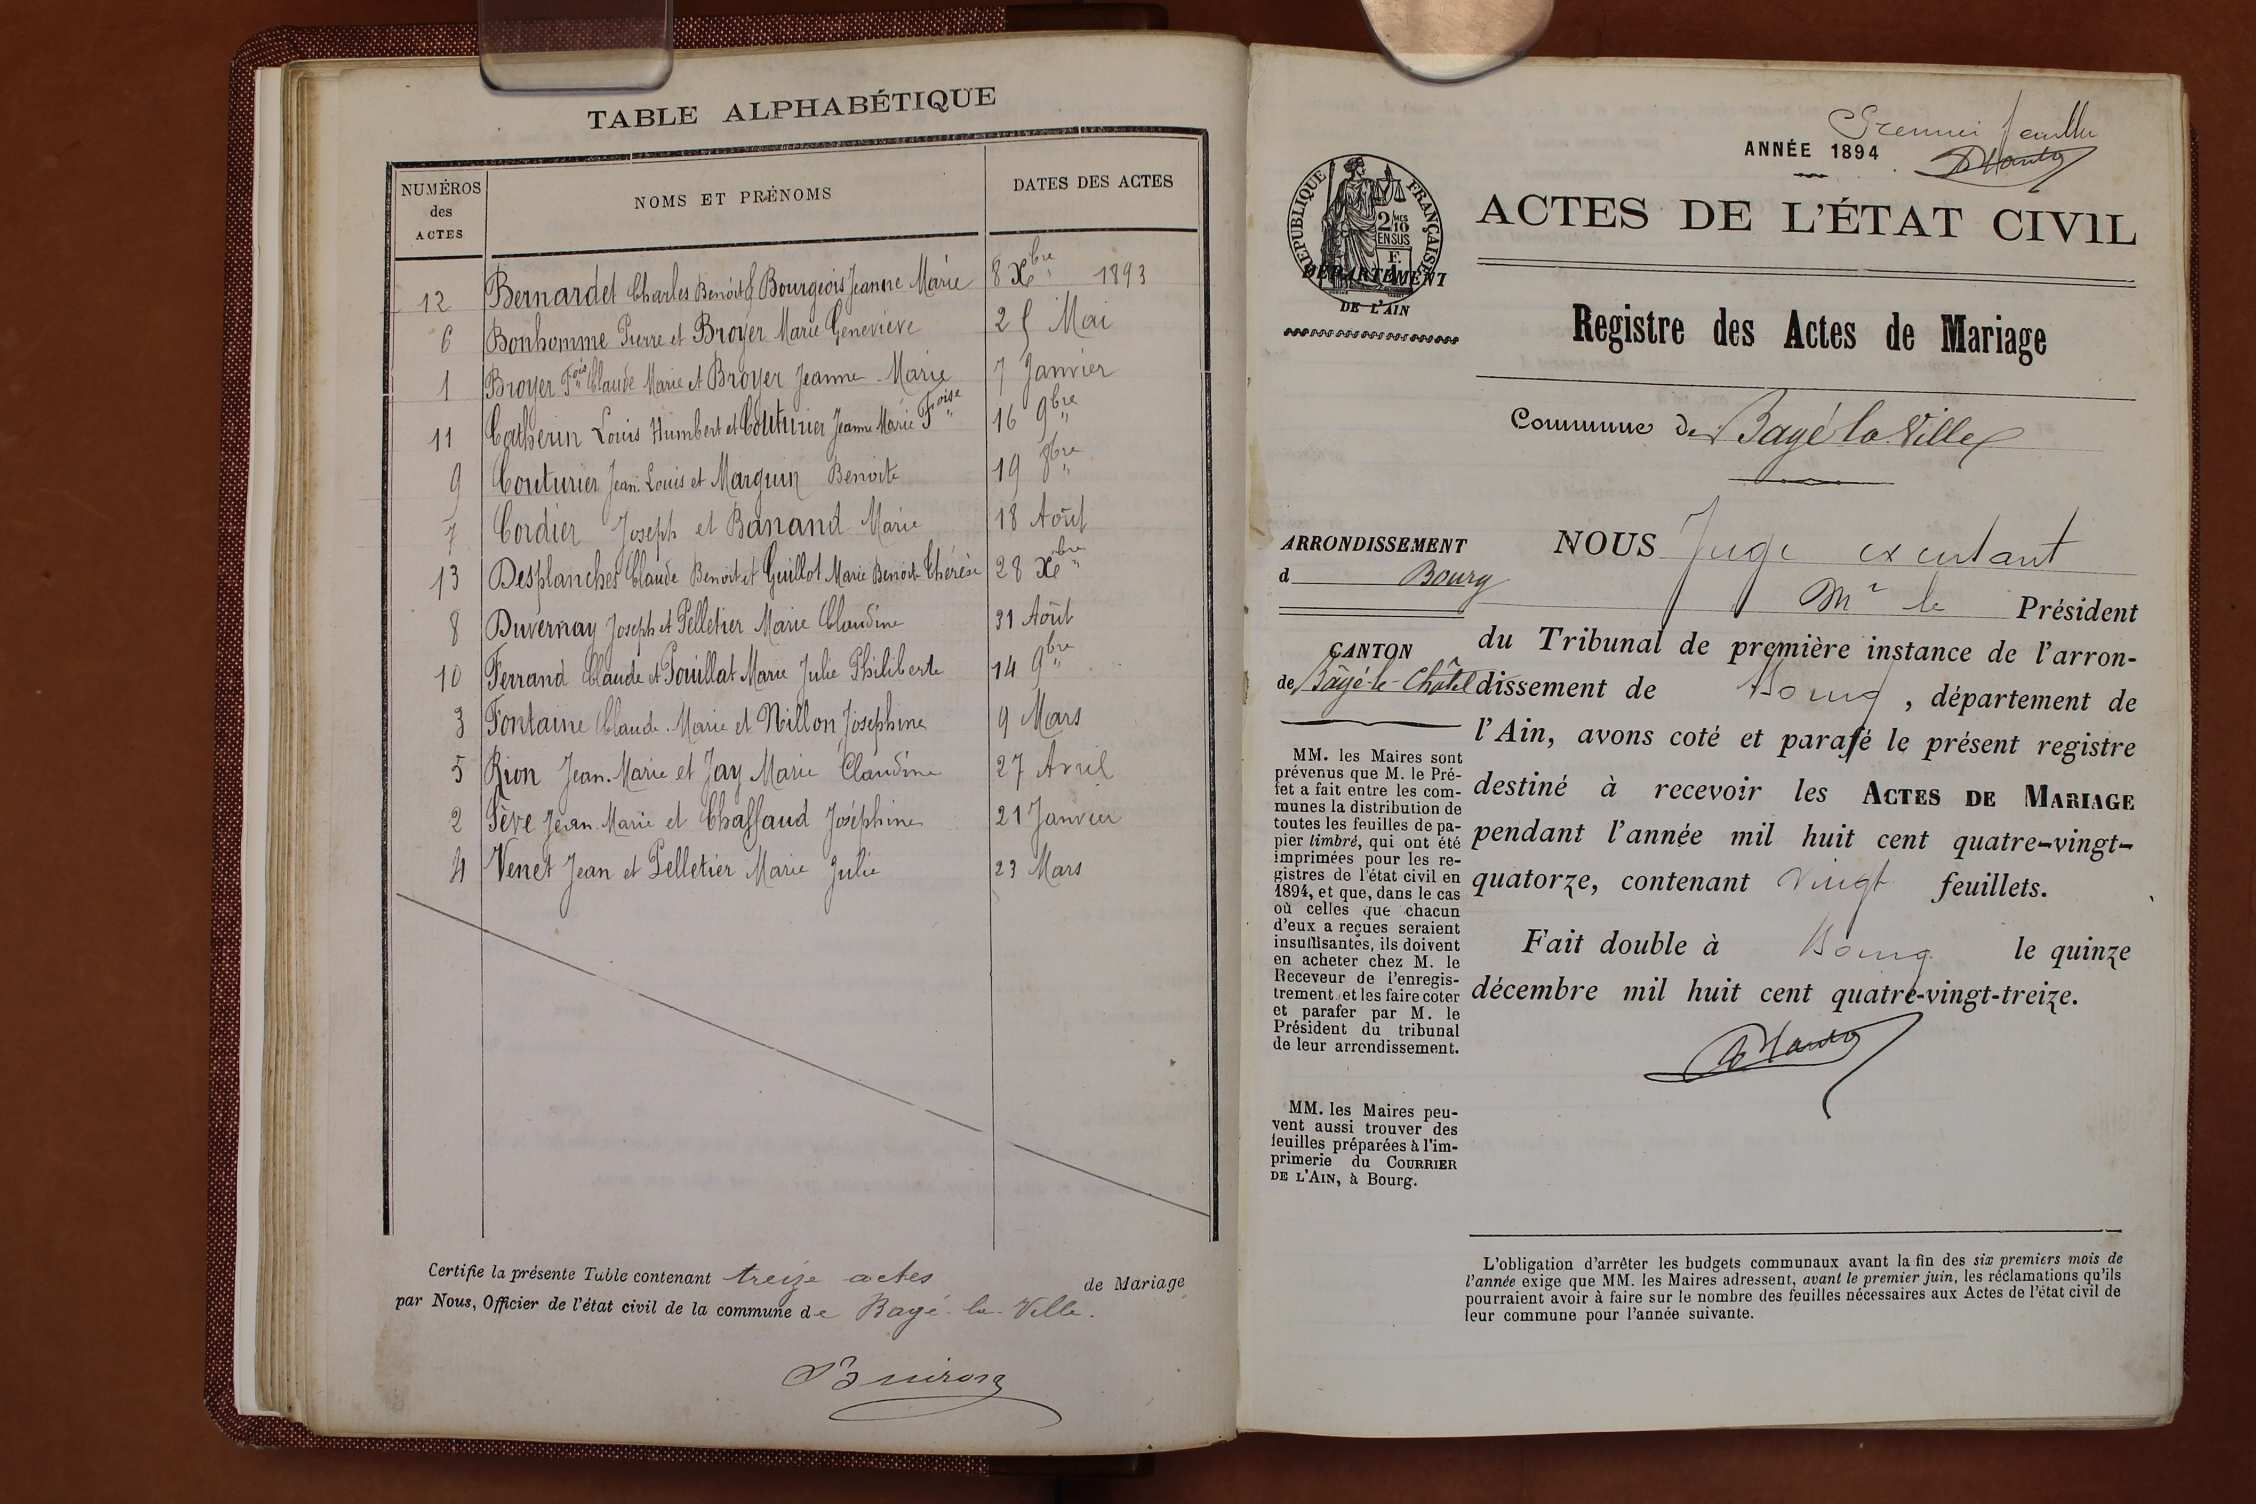 TABLE ALPHABÉTIQUE
NUMÉROS des ACTES NOMS ET PRÉNOMS DATES DES ACTES
12 Bernardet Charles Benoit & Bourgeois Jeanne Marie 8 Xbre 1893
6 Bonhomme Pierre et Broyer Marie Geneviève 25 Mai
1 Broyer Fois Claude Marie et Broyer Jeanne Marie 7 Janvier
11 Catherin Louis Humbert et Couturier Jeanne Marie Foise 16 9bre
9 Couturier Jean Louis et Marguin Benoite 19 8bre
7 Cordier Joseph et Banand Marie 18 Août
13 Desplanches Claude Benoit et Guillot Marie Benoite Thérèse 28 Xbre
8 Duvernay Joseph et Pelletier Marie Claudine 31 Août
10 Ferrand Claude et Pouillat Marie Julie Philiberte 14 9bre
3 Fontaine Claude-Marie et Nillon Joséphine 9 Mars
5 Rion Jean-Marie et Jay Marie Claudine 27 Avril
2 Sève Jean-Marie et Chaffaud Joséphine 21 Janvier
4 Venet Jean et Pelletier Marie Julie 23 Mars
Certifie la présente Table contenant treize actes de Mariage
par Nous, Officier de l'état civil de la commune de Bagé-la-Ville.
Premier feuillet
ANNÉE 1894
RÉPUBLIQUE FRANÇAISE
2/10 EN SUS
DÉPARTEMENT
DE L'AIN
ACTES DE L'ÉTAT CIVIL
Registre des Actes de Mariage
Commune de Bagé-la-Ville
ARRONDISSEMENT
d Bourg
CANTON
de Bâgé-le-Châtel
MM. les Maires sont
prévenus que M. le Pré-
fet a fait entre les com-
munes la distribution de
toutes les feuilles de pa-
pier timbré, qui ont été
imprimées pour les re-
gistres de l'état civil en
1894, et que, dans le cas
où celles que chacun
d'eux a reçues seraient
insuffisantes, ils doivent
en acheter chez M. le
Receveur de l'enregis-
trement et les faire coter
et parafer par M. le
Président du tribunal
de leur arrondissement.
MM. les Maires peu-
vent aussi trouver des
feuilles préparées à l'im-
primerie du COURRIER
DE L'AIN, à Bourg.
NOUS Juge
Mr le Président
du Tribunal de première instance de l'arron-
dissement de Bourg, département de
l'Ain, avons coté et parafé le présent registre
destiné à recevoir les ACTES DE MARIAGE
pendant l'année mil huit cent quatre-vingt-
quatorze, contenant vingt feuillets.
Fait double à Bourg le quinze
décembre mil huit cent quatre-vingt-treize.
L'obligation d'arrêter les budgets communaux avant la fin des six premiers mois de
l'année exige que MM. les Maires adressent, avant le premier juin, les réclamations qu'ils
pourraient avoir à faire sur le nombre des feuilles nécessaires aux Actes de l'état civil de
leur commune pour l'année suivante.